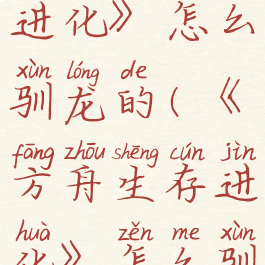 进化》怎么
xùn lóng de
驯龙的(《
fāng zhōu shēng cún jìn
方舟生存进
huà zěn me xùn
化》怎么驯